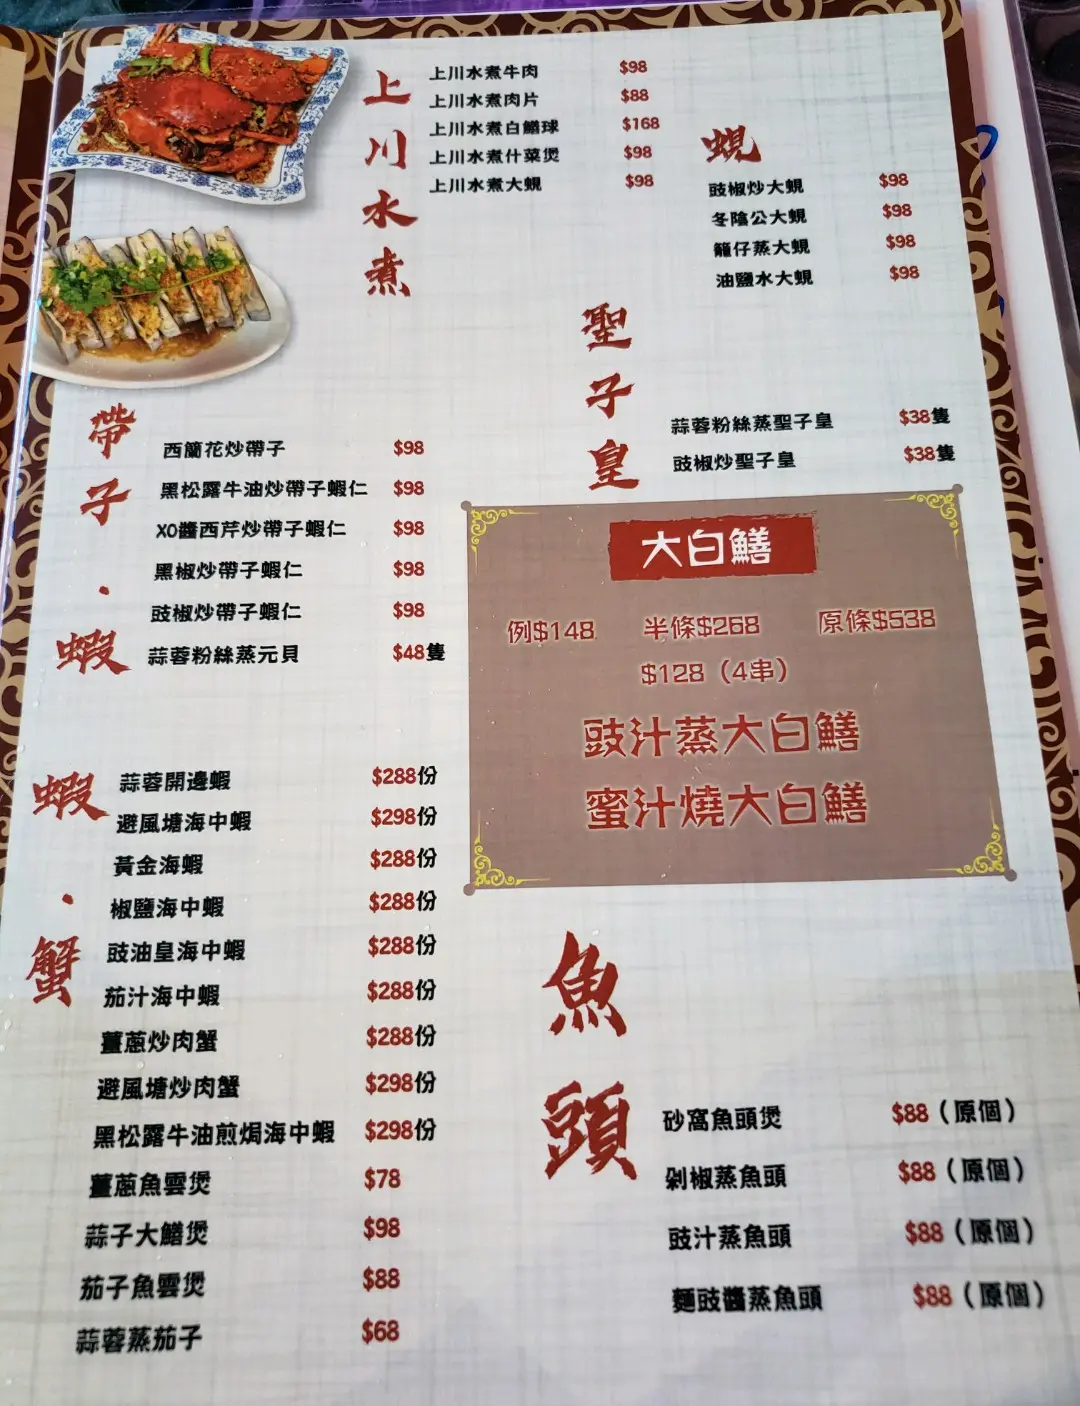 上川水煮
上川水煮牛肉 $98
上川水煮肉片 $88
上川水煮白鱔球 $168
上川水煮什菜煲 $98
上川水煮大蜆 $98
蜆
豉椒炒大蜆 $98
冬陰公大蜆 $98
籠仔蒸大蜆 $98
油鹽水大蜆 $98
聖子皇
蒜蓉粉絲蒸聖子皇 $38隻
豉椒炒聖子皇 $38隻
帶子·蝦
西蘭花炒帶子 $98
黑松露牛油炒帶子蝦仁 $98
XO醬西芹炒帶子蝦仁 $98
黑椒炒帶子蝦仁 $98
豉椒炒帶子蝦仁 $98
蒜蓉粉絲蒸元貝 $48隻
大白鱔
例$148 半條$268 原條$538
$128（4串）
豉汁蒸大白鱔
蜜汁燒大白鱔
蝦·蟹
蒜蓉開邊蝦 $288份
避風塘海中蝦 $298份
黃金海蝦 $288份
椒鹽海中蝦 $288份
豉油皇海中蝦 $288份
茄汁海中蝦 $288份
薑蔥炒肉蟹 $288份
避風塘炒肉蟹 $298份
黑松露牛油煎焗海中蝦 $298份
薑蔥魚雲煲 $78
蒜子大鱔煲 $98
茄子魚雲煲 $88
蒜蓉蒸茄子 $68
魚頭
砂窩魚頭煲 $88（原個）
剁椒蒸魚頭 $88（原個）
豉汁蒸魚頭 $88（原個）
麵豉醬蒸魚頭 $88（原個）